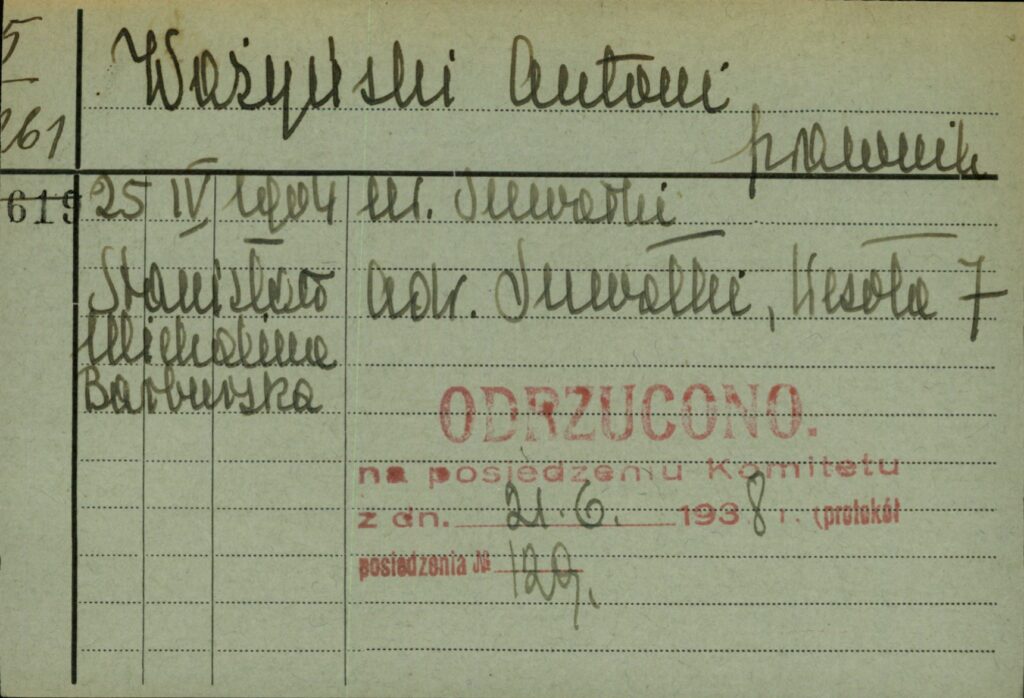 5
261
Ważyński Antoni
prawnik
619 25 IV 1904 m. Suwałki
Stanisław adr. Suwałki, Wesoła 7
Michalina
Barburska
ODRZUCONO.
na posiedzeniu Komitetu
z dn. 21.6. 1938 r. (protokół
posiedzenia № 129.